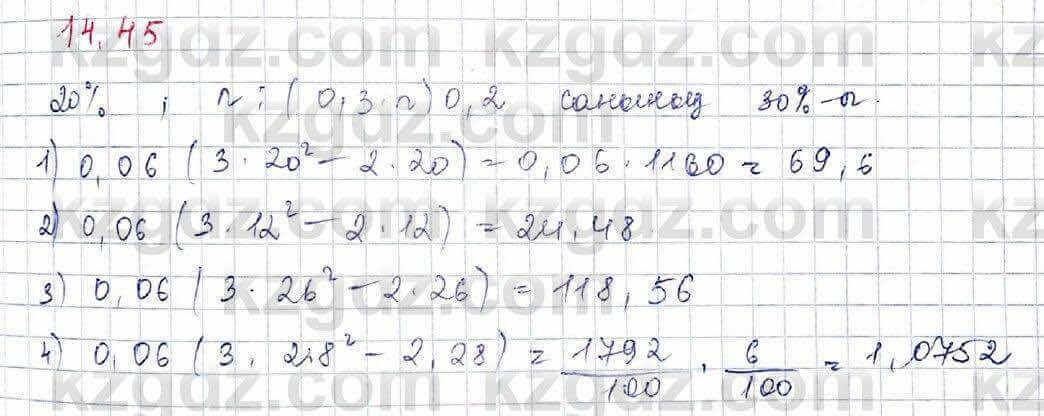 14.45
20% ; n : ( 0,3 · n ) 0,2 санының 30%-ы.
1) 0,06 ( 3 · 20² - 2 · 20 ) = 0,06 · 1160 = 69,6
2) 0,06 ( 3 · 12² - 2 · 12 ) = 24,48
3) 0,06 ( 3 · 26² - 2 · 26 ) = 118,56
4) 0,06 ( 3 · 2,8² - 2,28 ) = 1792/100 · 6/100 = 1,0752
kzgdz.com